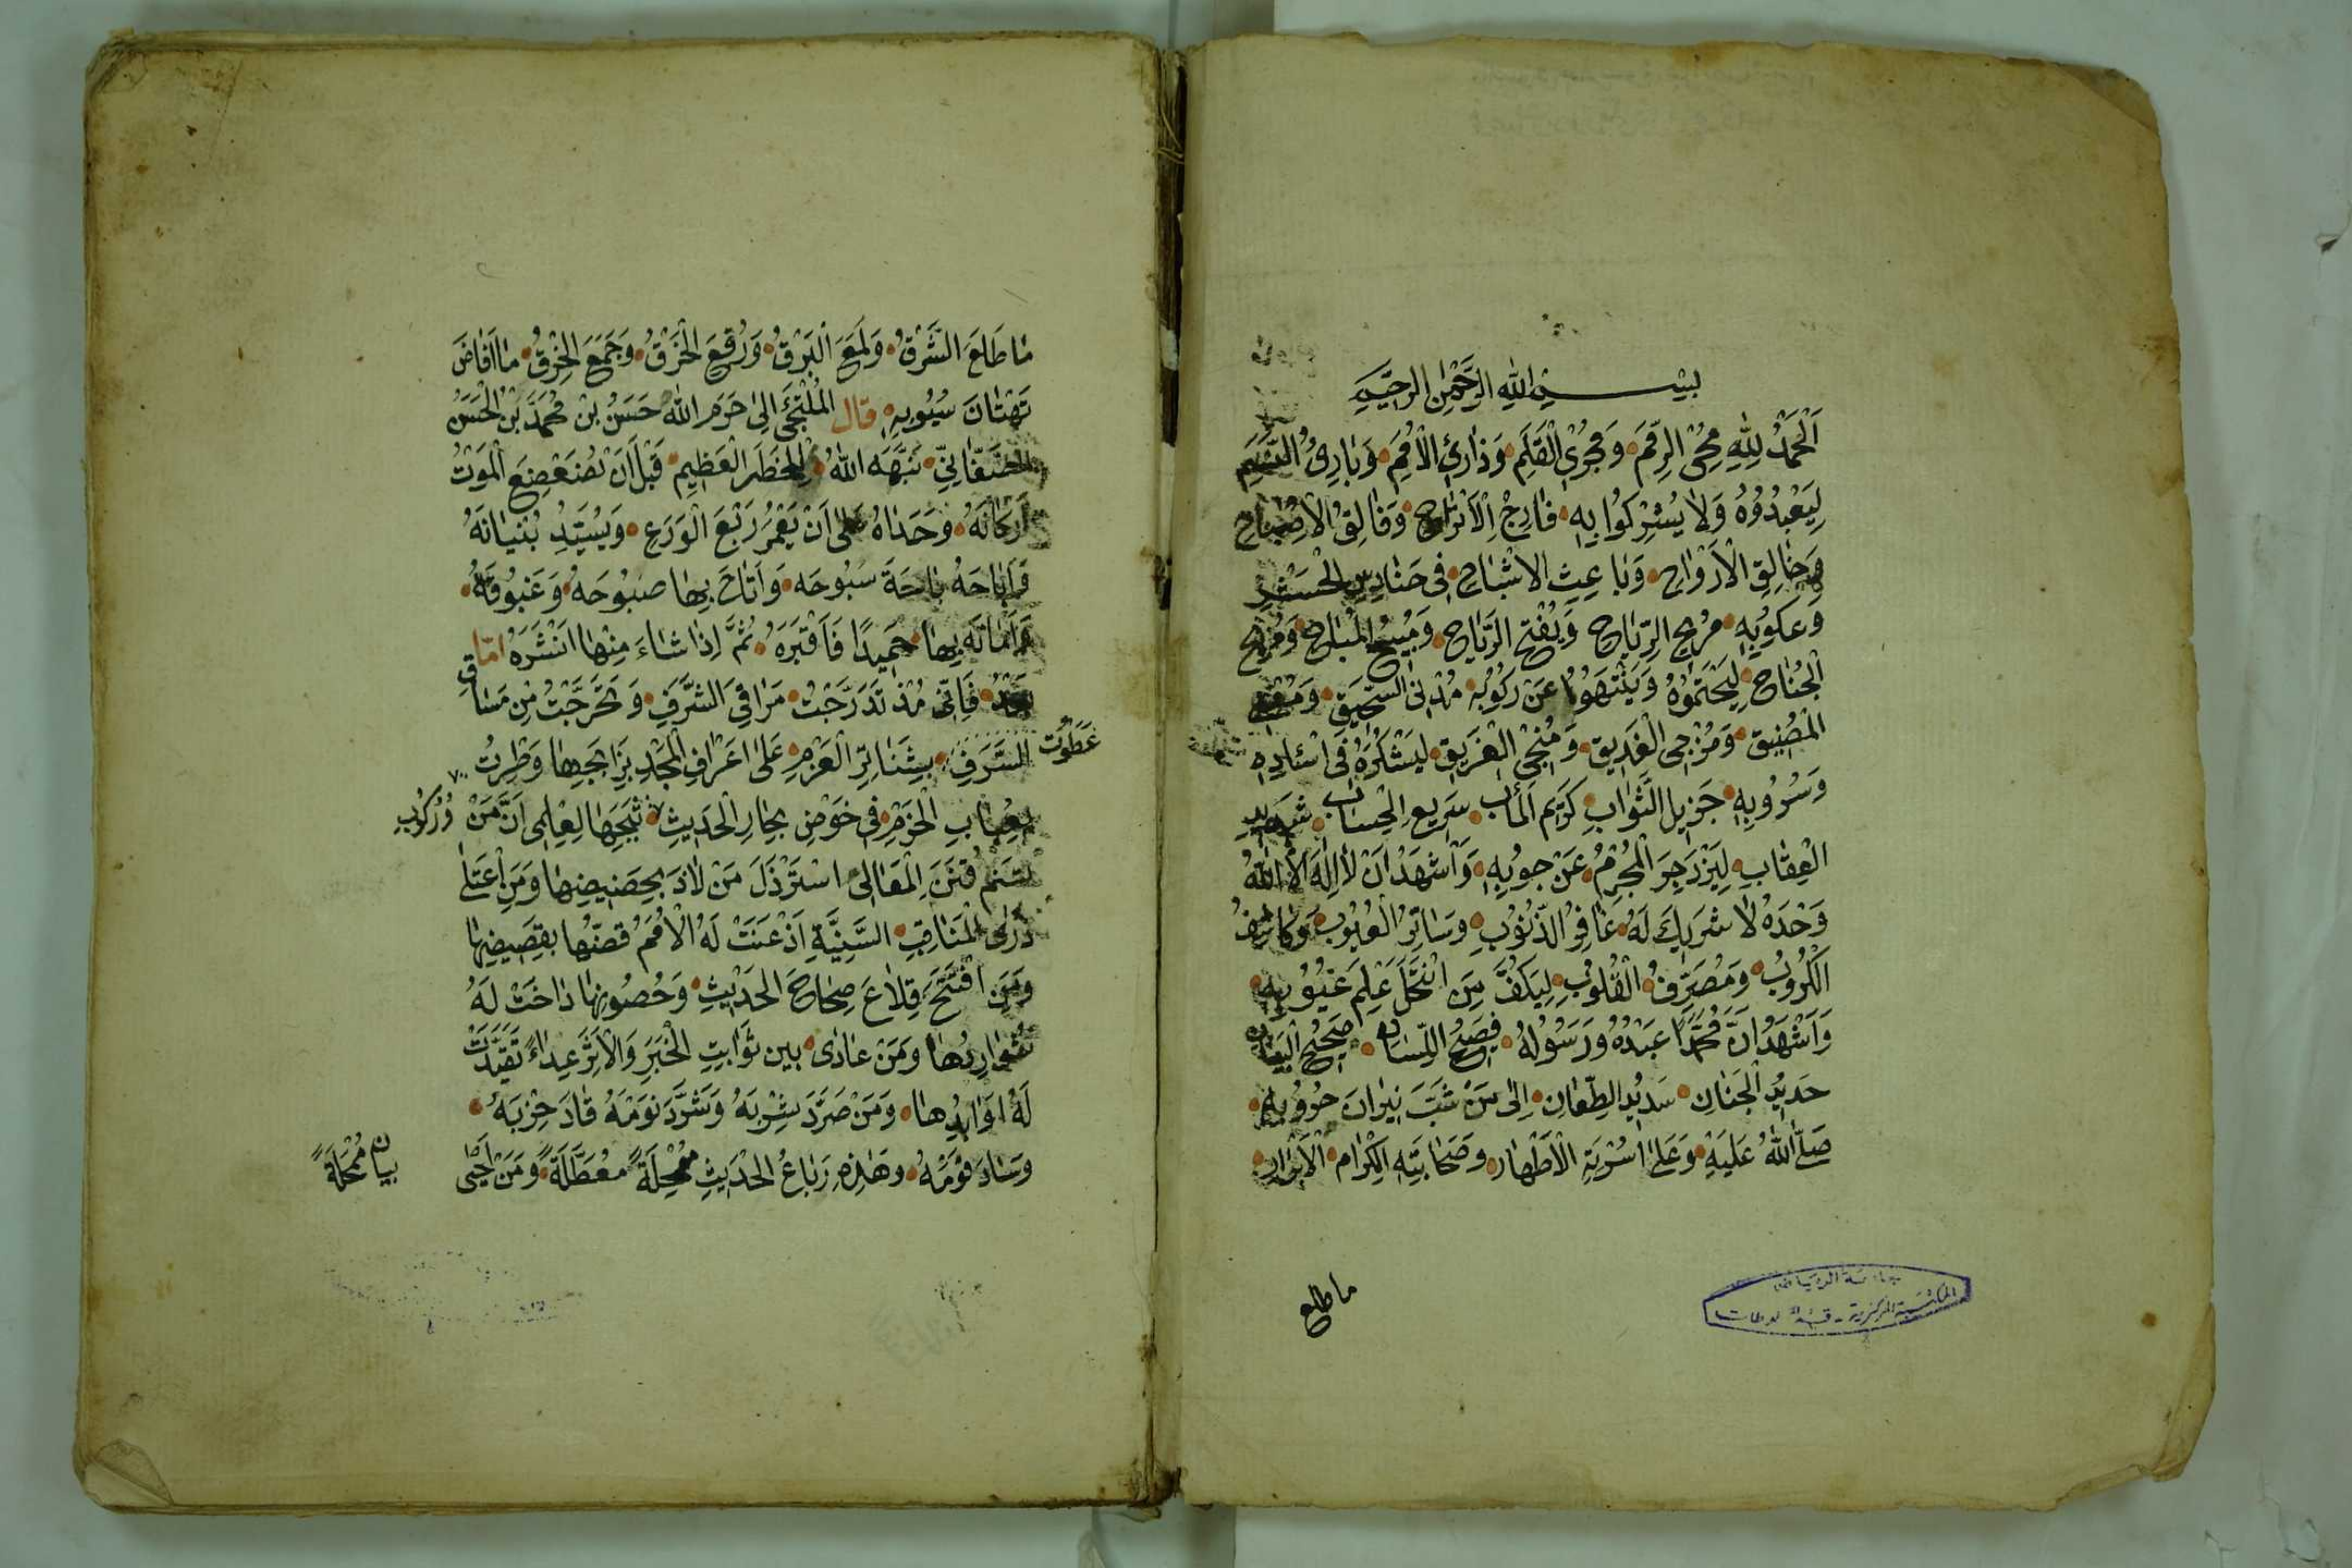 بسم الله الرحمن الرحيم
اَلْحَمْدُ لِلّٰهِ مُحْيِ الرِّمَمِ وَمُجْرِي الْقَلَمِ وَذَارِئِ الْاُمَمِ وَبَارِئِ النَّسَمِ
لِيَعْبُدُوْهُ وَلَا يُشْرِكُوا بِهِ فَارِجِ الْاَتْرَاحِ وَفَالِقِ الْاِصْبَاحِ
وَخَالِقِ الْاَرْوَاحِ وَبَاعِثِ الْاَشْبَاحِ فِى حَنَادِسِ
وَعَكُوْبِهِ مُرِيحِ الرِّيَاحِ وَيُفْتِحِ الرِّيَاحِ وَمُبِيْحِ الْمُبَاحِ
الْجُنَاحِ وَيَنْتَهُوْا عَنْ رُكُوْبِهِ مُدْنِى السَّحِيْقِ
الْمَضِيْقِ وَمُزْجِى الْغَدِيْقِ وَمُنْجِى الْغَرِيْقِ لِيَشْكُرَهُ فِى اسْئَادِهِ
وَسُرُوْبِهِ جَزِيْلِ الثَّوَابِ كَرِيْمِ الْمَأٰبِ سَرِيعِ الْحِسَابِ شَدِيدِ
الْعِقَابِ لِيَزْدَجِرَ الْمُجْرِمُ عَنْ حُوْبِهِ وَاَشْهَدُ اَنْ لَا اِلٰهَ اِلَّا اللّٰهُ
وَحْدَهُ لَا شَرِيْكَ لَهُ غَافِرُ الذُّنُوْبِ وَسَاتِرُ الْعُيُوْبِ وَكَاشِفُ
الْكُرُوْبِ وَمُصَرِّفُ الْقُلُوْبِ لِيَكُفَّ مَنِ انْتَحَلَ عِلْمَ غُيُوْبِهِ
وَاَشْهَدُ اَنَّ مُحَمَّدًا عَبْدُهُ وَرَسُوْلُهُ فَصِيْحُ اللِّسَانِ صَحِيْحُ الْبَيَانِ
حَدِيْدُ الْجَنَانِ سَدِيْدُ الطِّعَانِ اِلٰى مَنْ شَبَّ نِيْرَانَ حُرُوْبِهِ
صَلَّى اللّٰهُ عَلَيْهِ وَعَلٰى اُسْرَتِهِ الْاَطْهَارِ وَصَحَابَتِهِ الْكِرَامِ الْاَبْرَارِ
ما طلع
جامعة الرياض
المكتبة المركزية - قسم المخطوطات
مَا طَلَعَ الشَّرْقُ وَلَمَعَ الْبَرْقُ وَرُقِعَ الْخَرْقُ وَجَمَعَ الْخِرْقُ مَا اَفَاضَ
تَهْتَانَ سُيُوْبِهِ قال الْمُلْتَجِئُ اِلٰى حَرَمِ اللّٰهِ حَسَنُ بْنُ مُحَمَّدِ بْنِ الْحَسَنِ
الصَّغَانِيُّ نَبَّهَهُ اللّٰهُ لِلْخَطَرِ الْعَظِيْمِ قَبْلَ اَنْ تُضَعْضِعَ الْمَوْتُ
اَرْكَانَهُ وَحَدَاهُ عَلٰى اَنْ يَعْمُرَ رَبْعَ الْوَرَعِ وَيُشَيِّدَ بُنْيَانَهُ
وَاَبَاحَهُ بَاحَةَ سَبُوحَه وَاَتَاحَ بِهَا صَبُوْحَهُ وَغَبُوْقَهُ
وَاَمَاتَهُ بِهَا حَمِيْدًا فَاَقْبَرَهُ ثُمَّ اِذَا شَاءَ مِنْهَا اَنْشَرَهُ امّا
بَعْدُ فَاِنِّى مُذْ تَدَرَّجْتُ مَرَاقِىَ الشَّرَفِ وَتَحَرَّجْتُ مِنْ مَسَاقِ
السَّرَفِ بِشَنَاتِرِ الْعَزْمِ عَلٰى اَعْرَافِ الْمَجْدِ وَطِرْتُ
عَطَوْتُ
بِعُبَابِ الْحَزْمِ فِى خَوْضِ بِحَارِ الْحَدِيْثِ ثَبَجِهَا لِعِلْمِى اَنَّ مَنْ
وَرُكُوْبِ
تَسَنَّمَ قُنَنَ الْمَعَالِى اسْتَرْذَلَ مَنْ لَاذَ بِحَضِيْضِهَا وَمَنِ اعْتَلٰى
ذُرَى الْمَنَاقِبِ السَّنِيَّةِ اَذْعَنَتْ لَهُ الْاُمَمُ قَضُّهَا بِقَضِيْضِهَا
وَمَنِ افْتَتَحَ قِلَاعَ صِحَاحِ الْحَدِيْثِ وَحُصُوْنِهَا دَاخَتْ لَهُ
شَوَارِدُهَا وَمَنْ عَادٰى بَيْنَ ثَوَابِتِ الْخَبَرِ وَالْاَثَرِ عِدَاءً تَقَيَّدَتْ
لَهُ اَوَابِدُهَا وَمَنْ صَرَّدَ شِرْبَهُ وَشَرَّدَ نَوْمَهُ قَادَ حِزْبَهُ
وَسَادَ قَوْمَهُ وَهٰذِهِ رِبَاعُ الْحَدِيْثِ مُمْحِلَةً مُعَطَّلَةً وَمَنْ اَحْيٰى
بيان مُمْحِلَةً